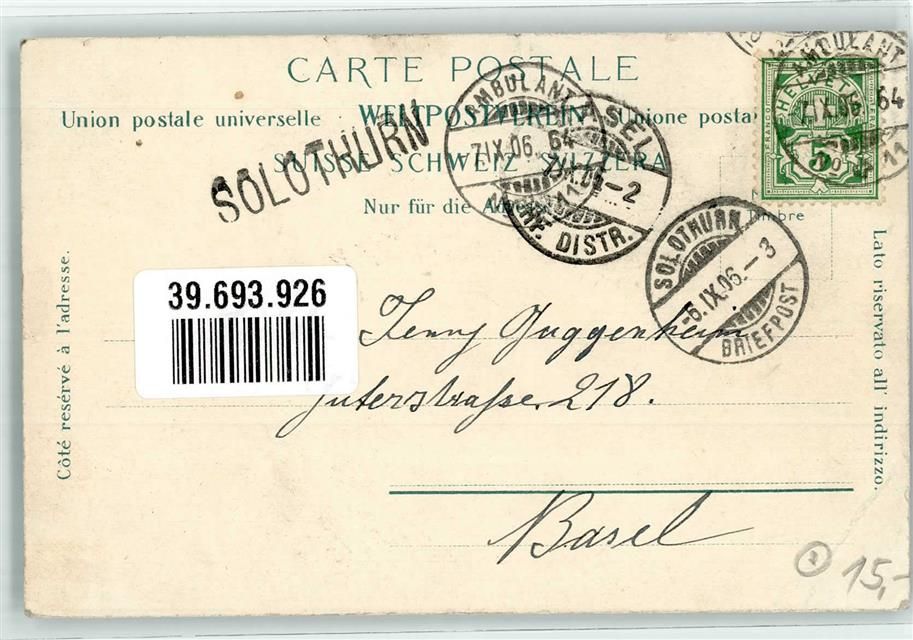 CARTE POSTALE
Union postale universelle WELTPOSTVEREIN Unione posta
SUISSE SCHWEIZ SVIZZERA
Nur für die Adresse
SOLOTHURN
AMBULANT
7.IX.06. 64
BASEL
7.IX.06.-2
BRF. DISTR.
AMBULANT
7.IX.06. 64
HELVETIA
FRANCO
5
Timbre
SOLOTHURN
-6.IX.06.-3
BRIEFPOST
Côté resérvé à l'adresse.
Lato riservato all' indirizzo.
39.693.926
Jenny Guggenheim
Güterstrasse 218.
Basel
15,-